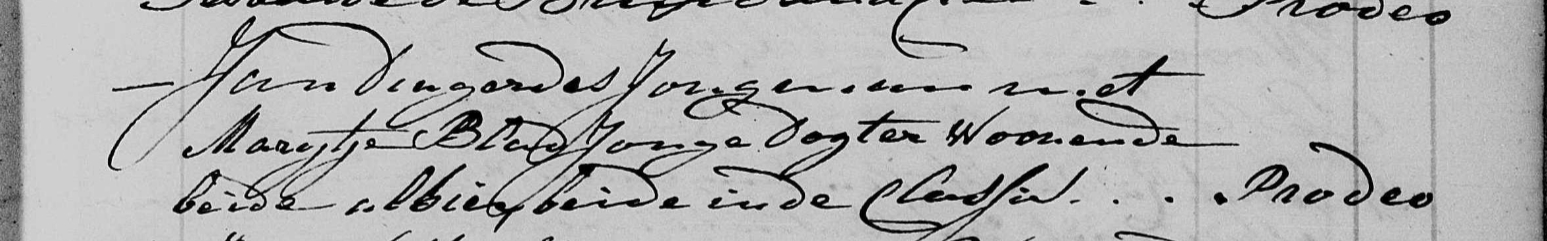 Prodeo
— Jan Dingerdes Jongeman met
Marijtje Blad Jonge Dogter Woonende
beide alhier beide in de Classis . . . Prodeo